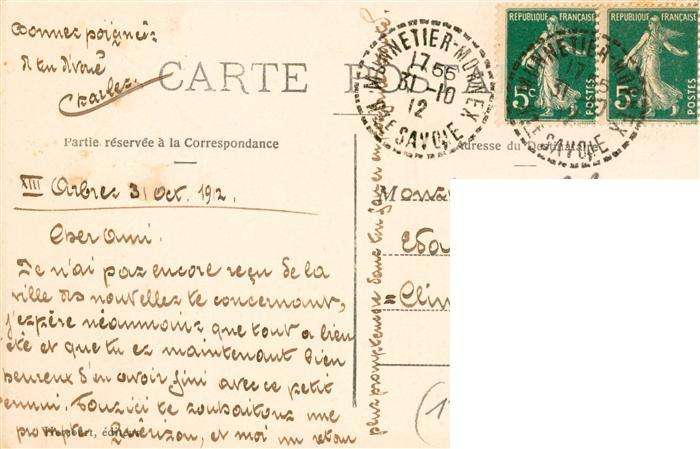 Bonnes poignées
A ton dévoué
Charles
CARTE
Partie réservée à la Correspondance
Adresse du Destinataire
MONNETIER-MORNEX
17 55
31-10
12
Hte SAVOIE
REPUBLIQUE FRANÇAISE
5c
POSTES
REPUBLIQUE FRANÇAISE
5c
POSTES
MONNETIER-MORNEX
17
31
Hte SAVOIE
XIII Arbres 31 oct. 192.
Cher Ami.
Je n'ai pas encore reçu de la
ville des nouvelles te concernant,
j'espère néanmoins que tout a bien
été et que tu es maintenant bien
heureux d'en avoir fini avec ce petit
ennui. Tous ici te souhaitons une
prompte guérison, et moi un retour
éditeur
plus prompt encore dans ton foyer
= Clin